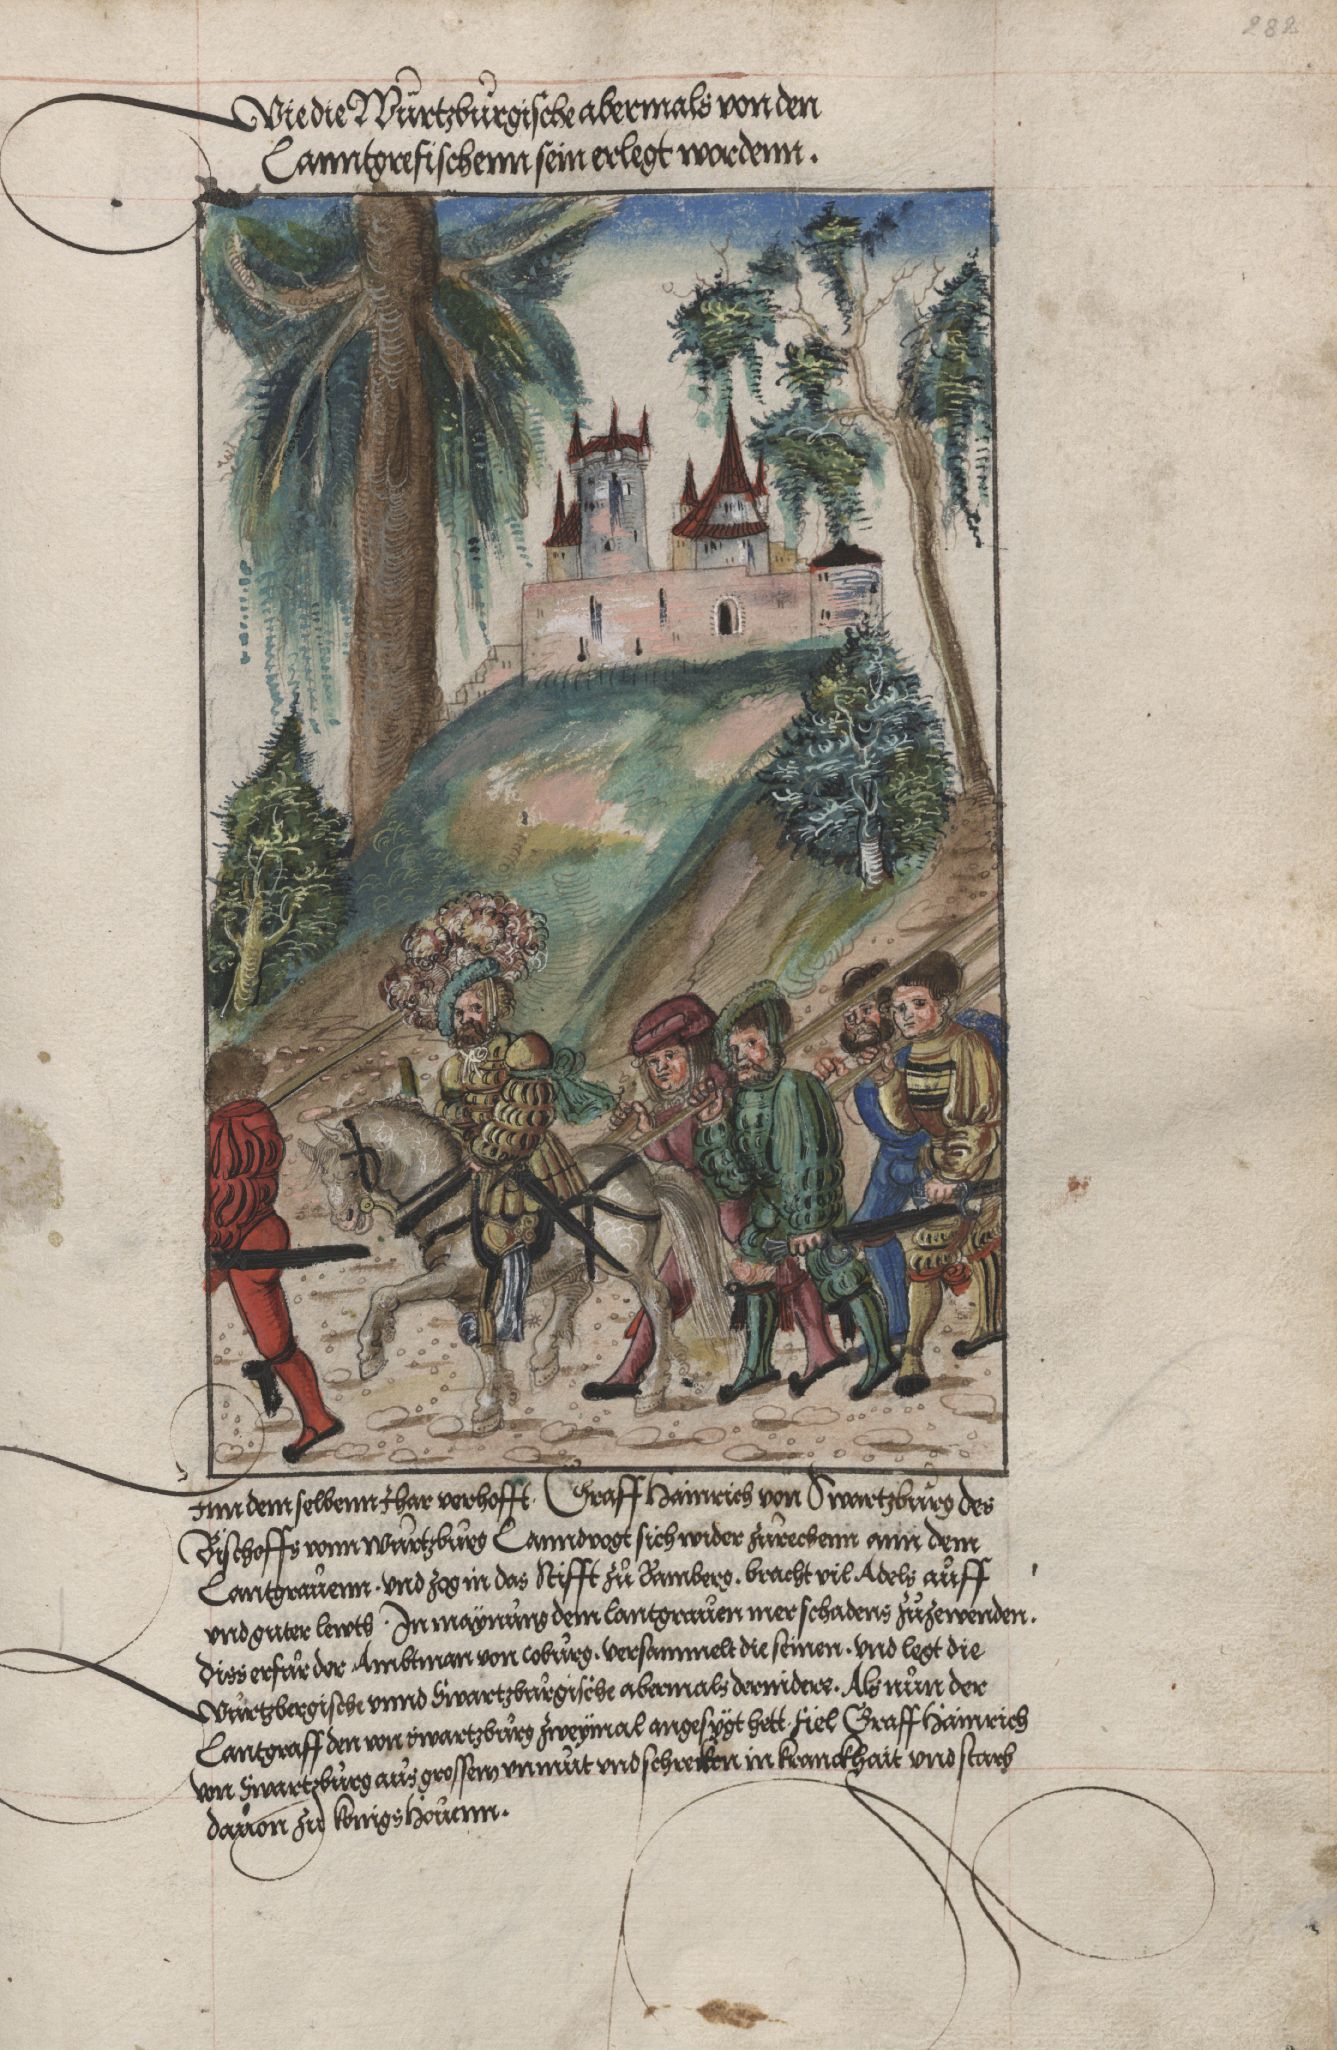 282
Wie die Würtzbürgische abermals von den
Lanntgrefischenn sein erlegt wordenn.
Inn dem selbenn Jhar verhofft. Graff Hainrich von Swartzbürg des
Bischoffs vonn Würtzbürg Lanndvogt sich wider zürechenn ann dem
Lantgraüenn. vnd zog in das Stifft zü Bamberg. bracht vil Adels aüff
vnd guter lewth. In maÿnüng dem lantgraüen mer schadens züzewenden.
Diss erfür der Ambtman von cobürg. versammelt die seinen. vnd legt die
Würtzbergische vnnd Swartzbürgische abermals dernidere. Als nün der
Lantgraff den von Swartzbürg zweÿmal angesÿgt hett. fiel Graff Hainrich
von Swartzbürg aüs grossem vnmüt vnd schrecken in kranckhait vnd starb
daüon zü konigsHouenn.